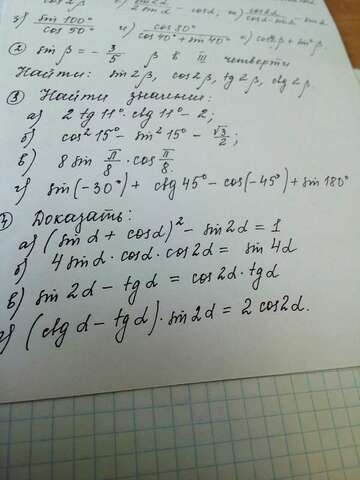 з) sin 100° / cos 50° и) cos 80° / cos 40° + sin 40°
② sin β = - 3/5 β в III четверти
Найти: sin 2β, cos 2β, tg 2β, ctg 2β.
③ Найти значение:
а) 2 tg 11° · ctg 11° - 2;
б) cos² 15° - sin² 15° - √3/2;
в) 8 sin π/8 · cos π/8.
г) sin(-30°) + ctg 45° - cos(-45°) + sin 180°
Доказать:
а) (sin d + cos d)² - sin 2d = 1
б) 4 sin d · cos d · cos 2d = sin 4d
в) sin 2d - tg d = cos 2d · tg d
г) (ctg d - tg d) · sin 2d = 2 cos 2d.